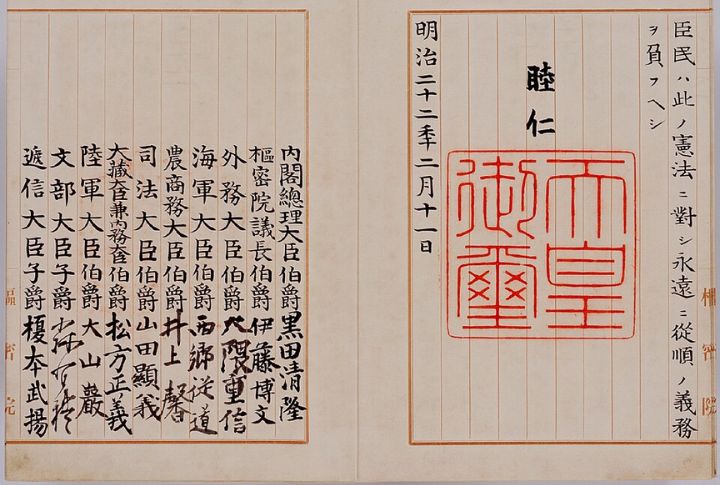 臣民ハ此ノ憲法ニ對シ永遠ニ從順ノ義務
ヲ負フヘシ
睦仁
天皇
御璽
明治二十二年二月十一日
内閣總理大臣伯爵黒田清隆
樞密院議長伯爵伊藤博文
外務大臣伯爵大隈重信
海軍大臣伯爵西郷従道
農商務大臣伯爵井上馨
司法大臣伯爵山田顯義
大藏大臣兼内務大臣伯爵松方正義
陸軍大臣伯爵大山巖
文部大臣子爵
遞信大臣子爵榎本武揚
樞密院
樞密院